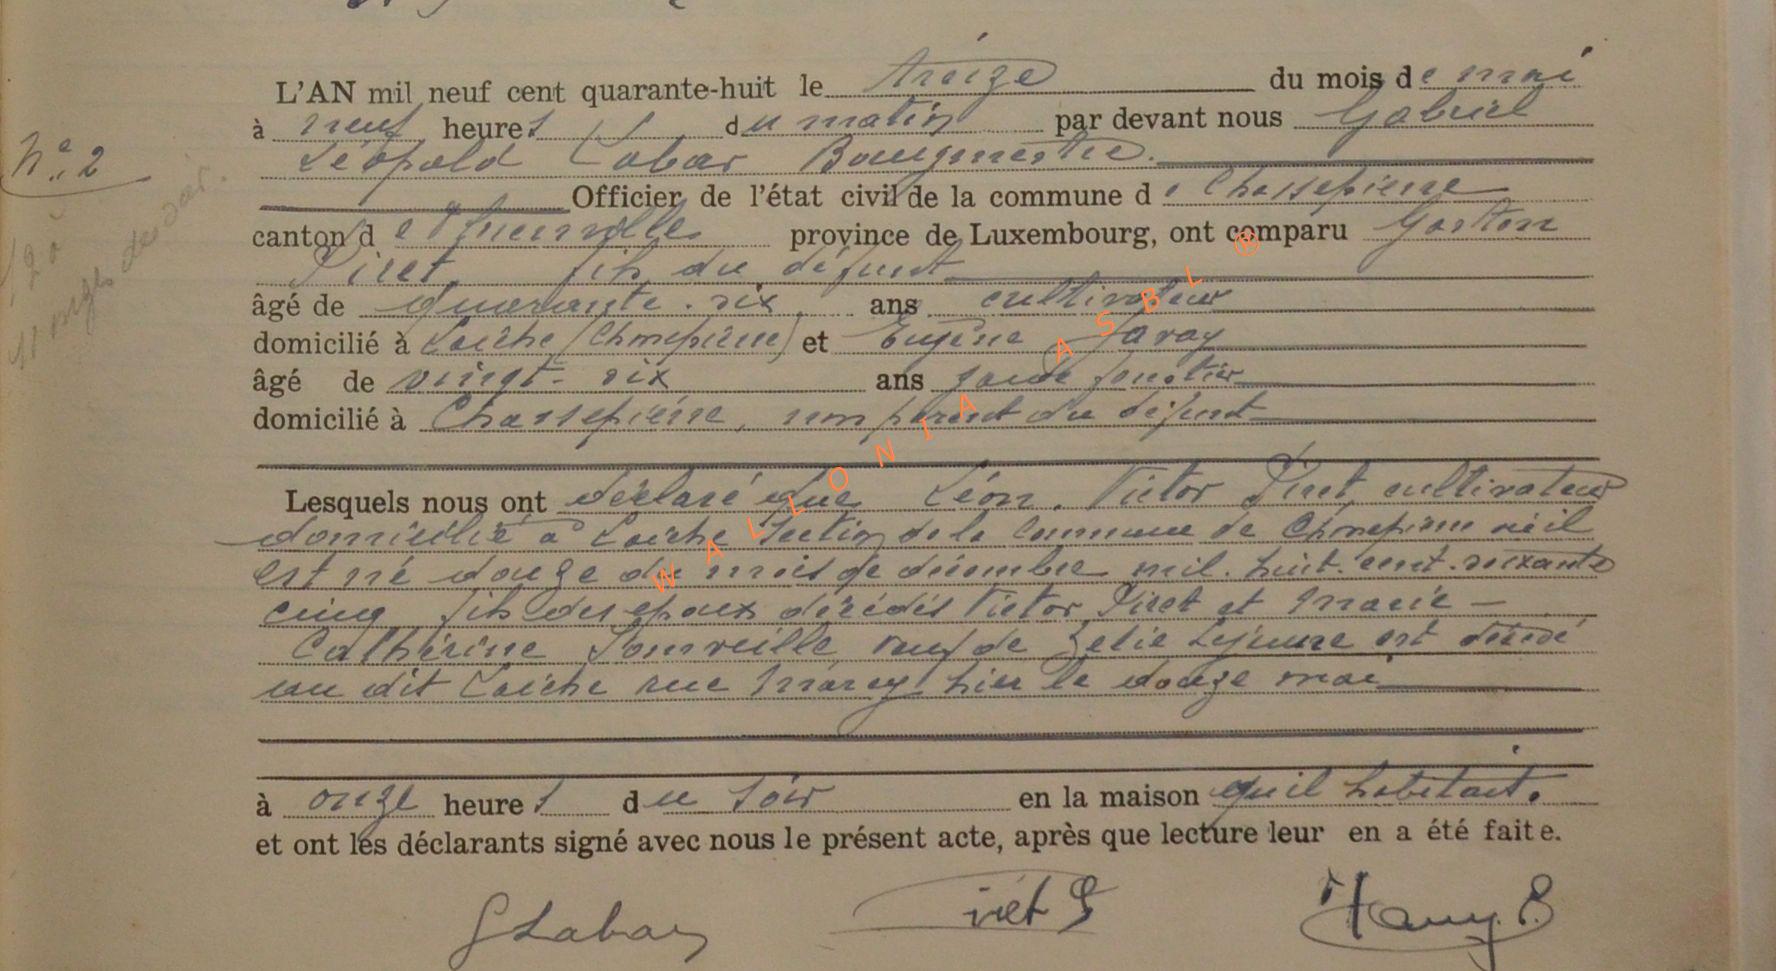 L'AN mil neuf cent quarante-huit le treize du mois de mai
à neuf heures du matin par devant nous Gabriel
N° 2
Léopold Labar Bourgmestre.
Officier de l'état civil de la commune de Chassepierre
canton de Florenville province de Luxembourg, ont comparu Gaston
Piret fils du défunt
âgé de quarante-six ans cultivateur
domicilié à Laiche (Chassepierre) et Eugène
âgé de vingt-six ans garde forestier
domicilié à Chassepierre, non parent du défunt
Lesquels nous ont déclaré que Léon, Victor Piret, cultivateur
domicilié à Laiche section de la commune de Chassepierre où il
est né douze du mois de décembre mil huit cent soixante
cinq fils des époux décédés Victor Piret et Marie-
Catherine veuf de Zélie Lejeune est décédé
au dit Laiche rue hier le douze mai
à onze heures du soir en la maison qu'il habitait.
et ont les déclarants signé avec nous le présent acte, après que lecture leur en a été faite.
GLabar Piret G
WALLONIA ASBL ®